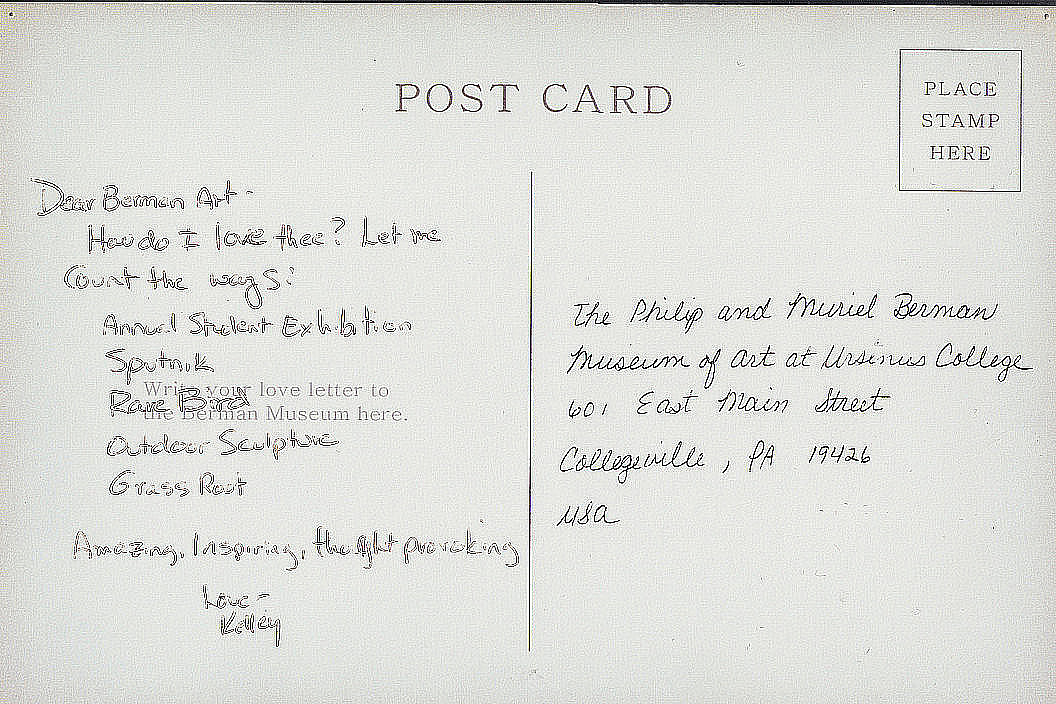 POST CARD
PLACE
STAMP
HERE
Dear Berman Art-
How do I love thee? Let me
Count the ways:
Annual Student Exhibition
Sputnik
Write your love letter to
Rare Bird
the Berman Museum here.
Outdoor Sculpture
Grass Root
Amazing, Inspiring, thought provoking
Love-
Kelley
The Philip and Muriel Berman
Museum of Art at Ursinus College
601 East Main Street
Collegeville, PA 19426
USA